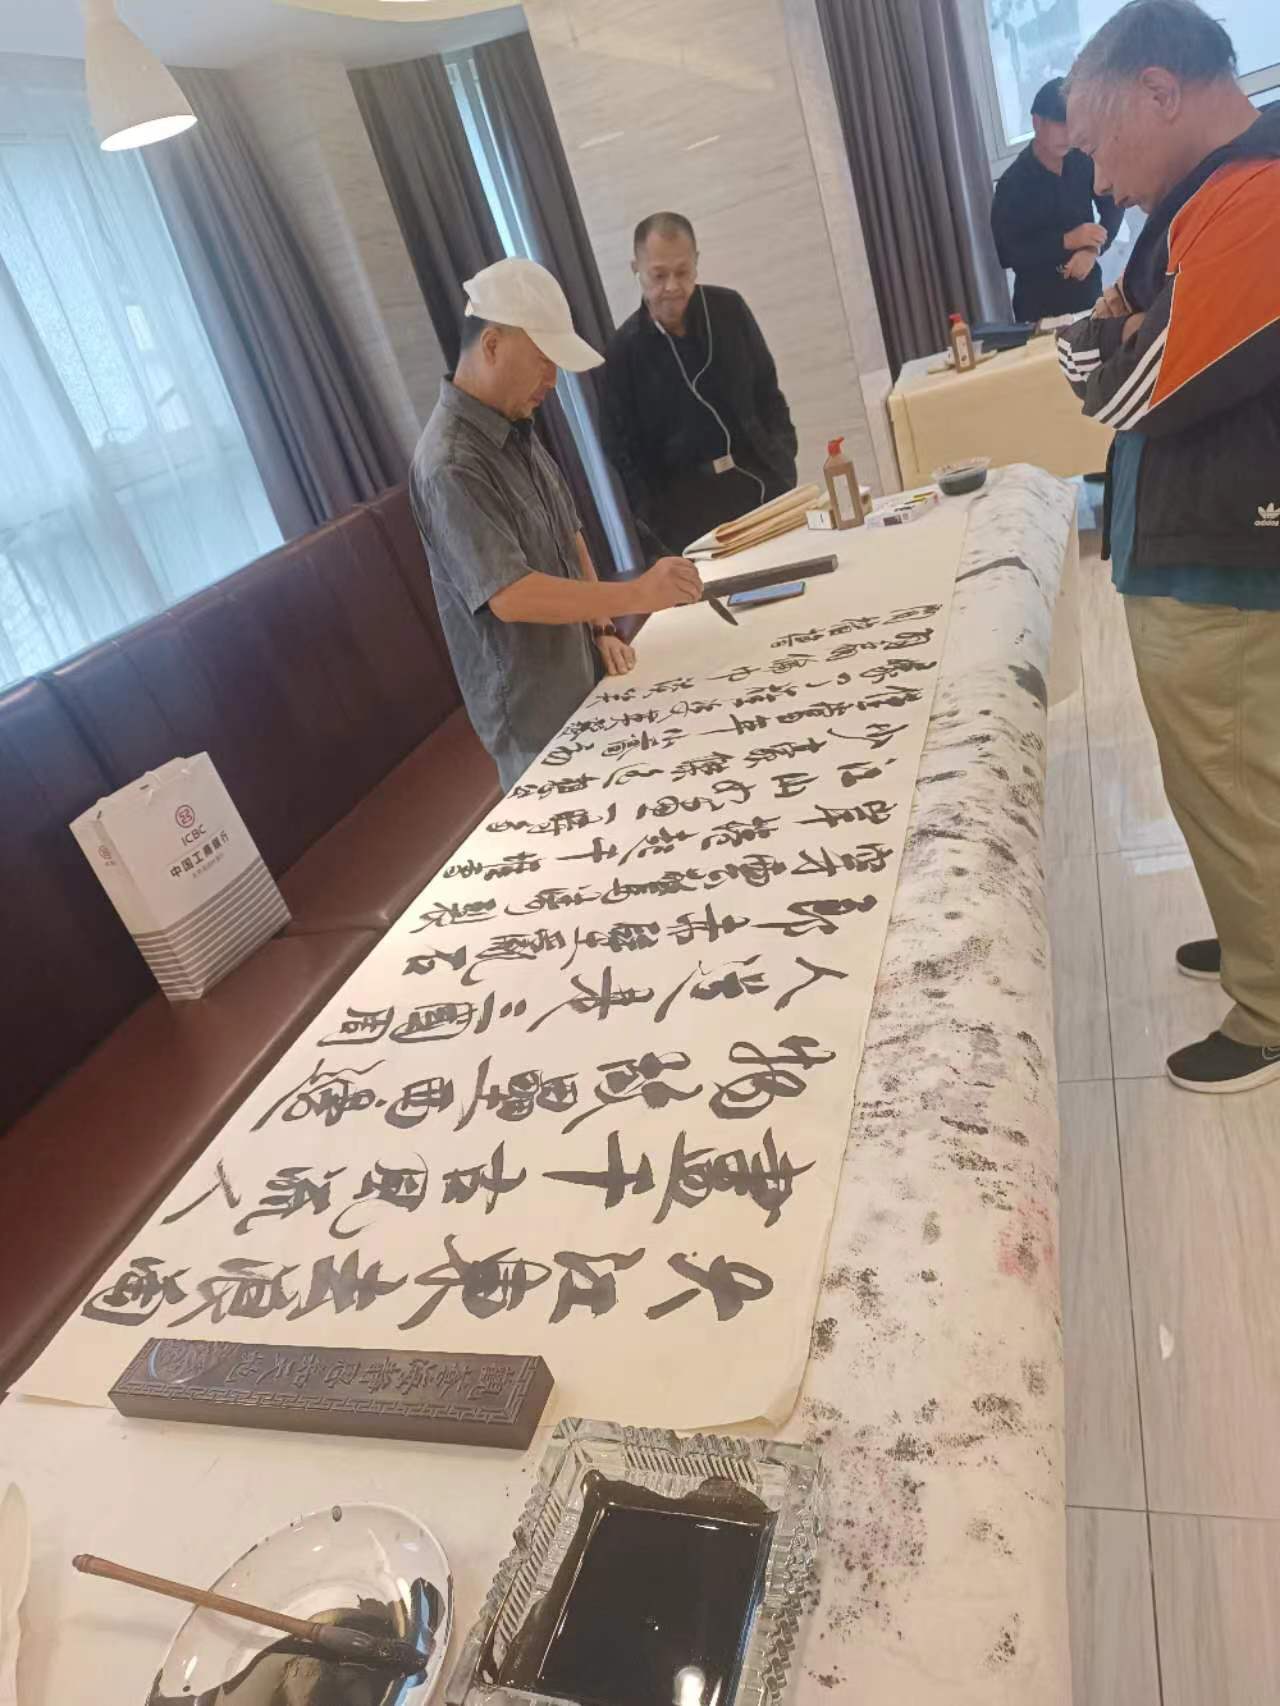 大江東去浪淘
盡千古風流人
物故壘西邊
人道是三國周
郎赤壁亂石
雲驚濤裂
岸捲起千堆雪
江山如畫一時多
少豪傑遙想公
瑾當年小喬初
嫁了雄姿英發
羽扇綸巾談笑
間檣櫓
ICBC
中国工商银行
adidas